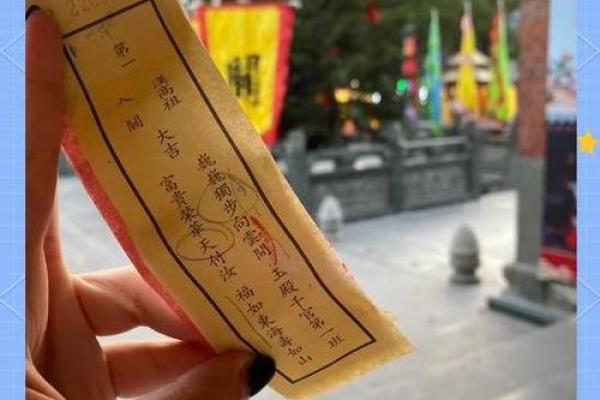 第一
漢高祖
入關
大吉
巍巍獨步向雲間
玉殿千官第一班
富貴榮華天付汝
福如東海壽如山